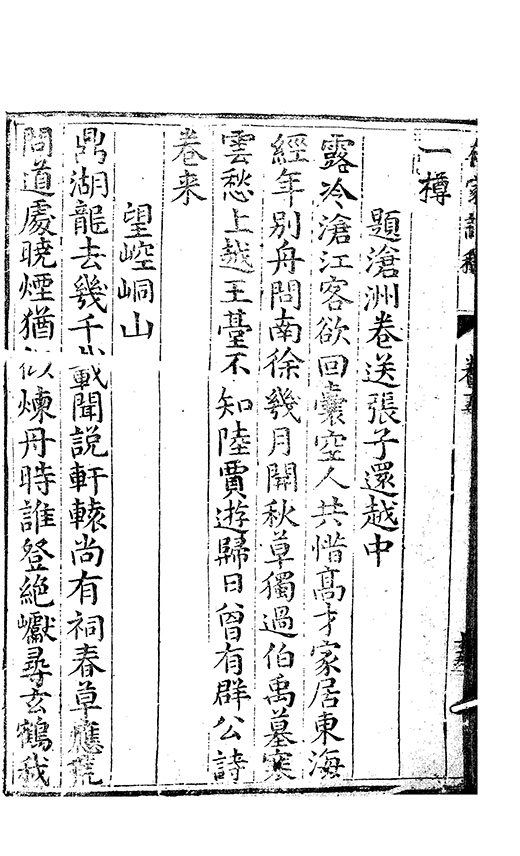 一樽
題滄洲卷送張子還越中
露冷滄江客欲回囊空人共惜高才家居東海
經年別舟問南徐幾月開秋草獨過伯禹墓寒
雲愁上越王臺不知陸賈遊歸日曾有群公詩
卷来
望崆峒山
鼎湖龍去幾千載聞說軒轅尚有祠春草應荒
問道處曉煙猶似煉丹時誰登絶巘尋玄鶴我